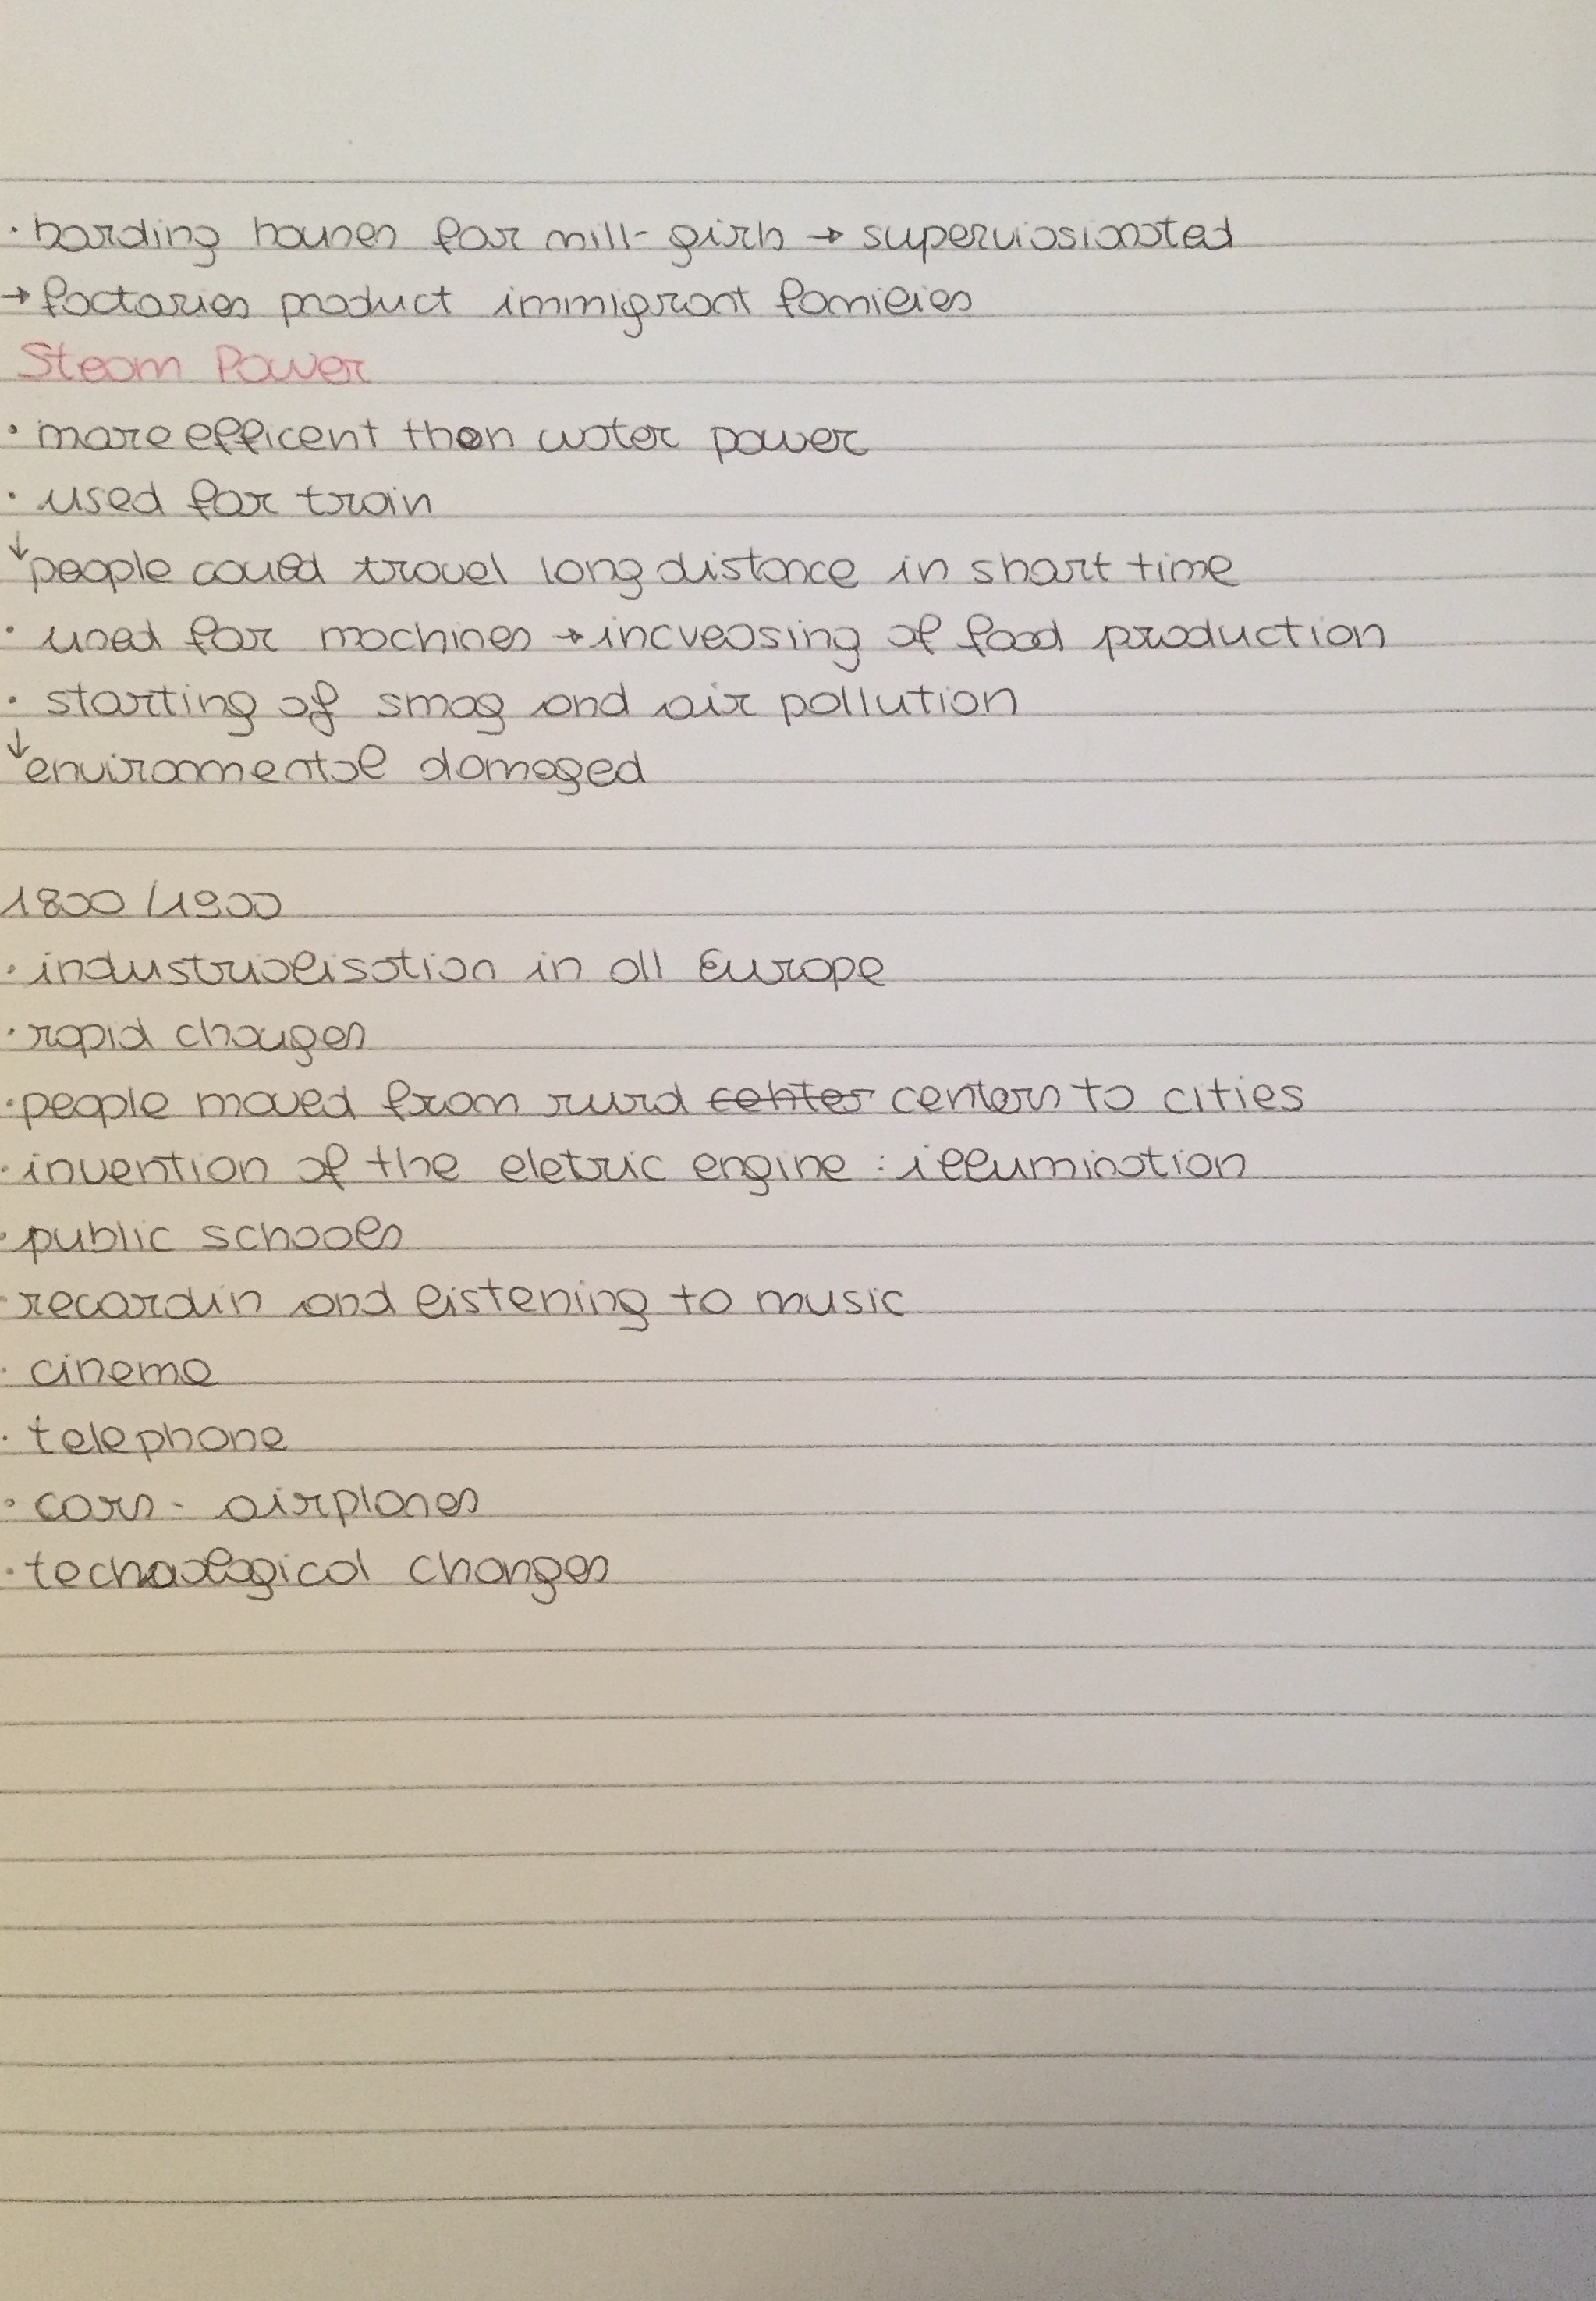 · bording houses for mill-girls → supervissionated
→ factories product immigrant families
Steam Power
· more efficent than water power
· used for train
↓ people could travel long distance in short time
· used for machines → increasing of food production
· starting of smog and air pollution
↓ environmental damaged
1800/1900
· industrialisation in all Europe
· rapid changes
· people moved from rural center centers to cities
· invention of the eletric engine: illumination
· public schools
· recordin and listening to music
· cinema
· telephone
· cars - airplanes
· technological changes